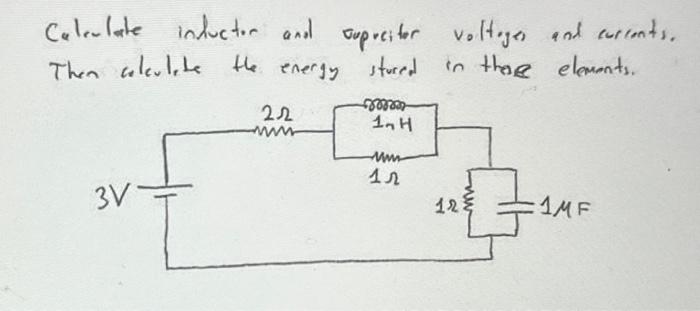 Calculate inductor and capacitor voltages and currents.
Then calculate the energy stored in these elements.
2Ω
1nH
1Ω
3V
1Ω
1MF